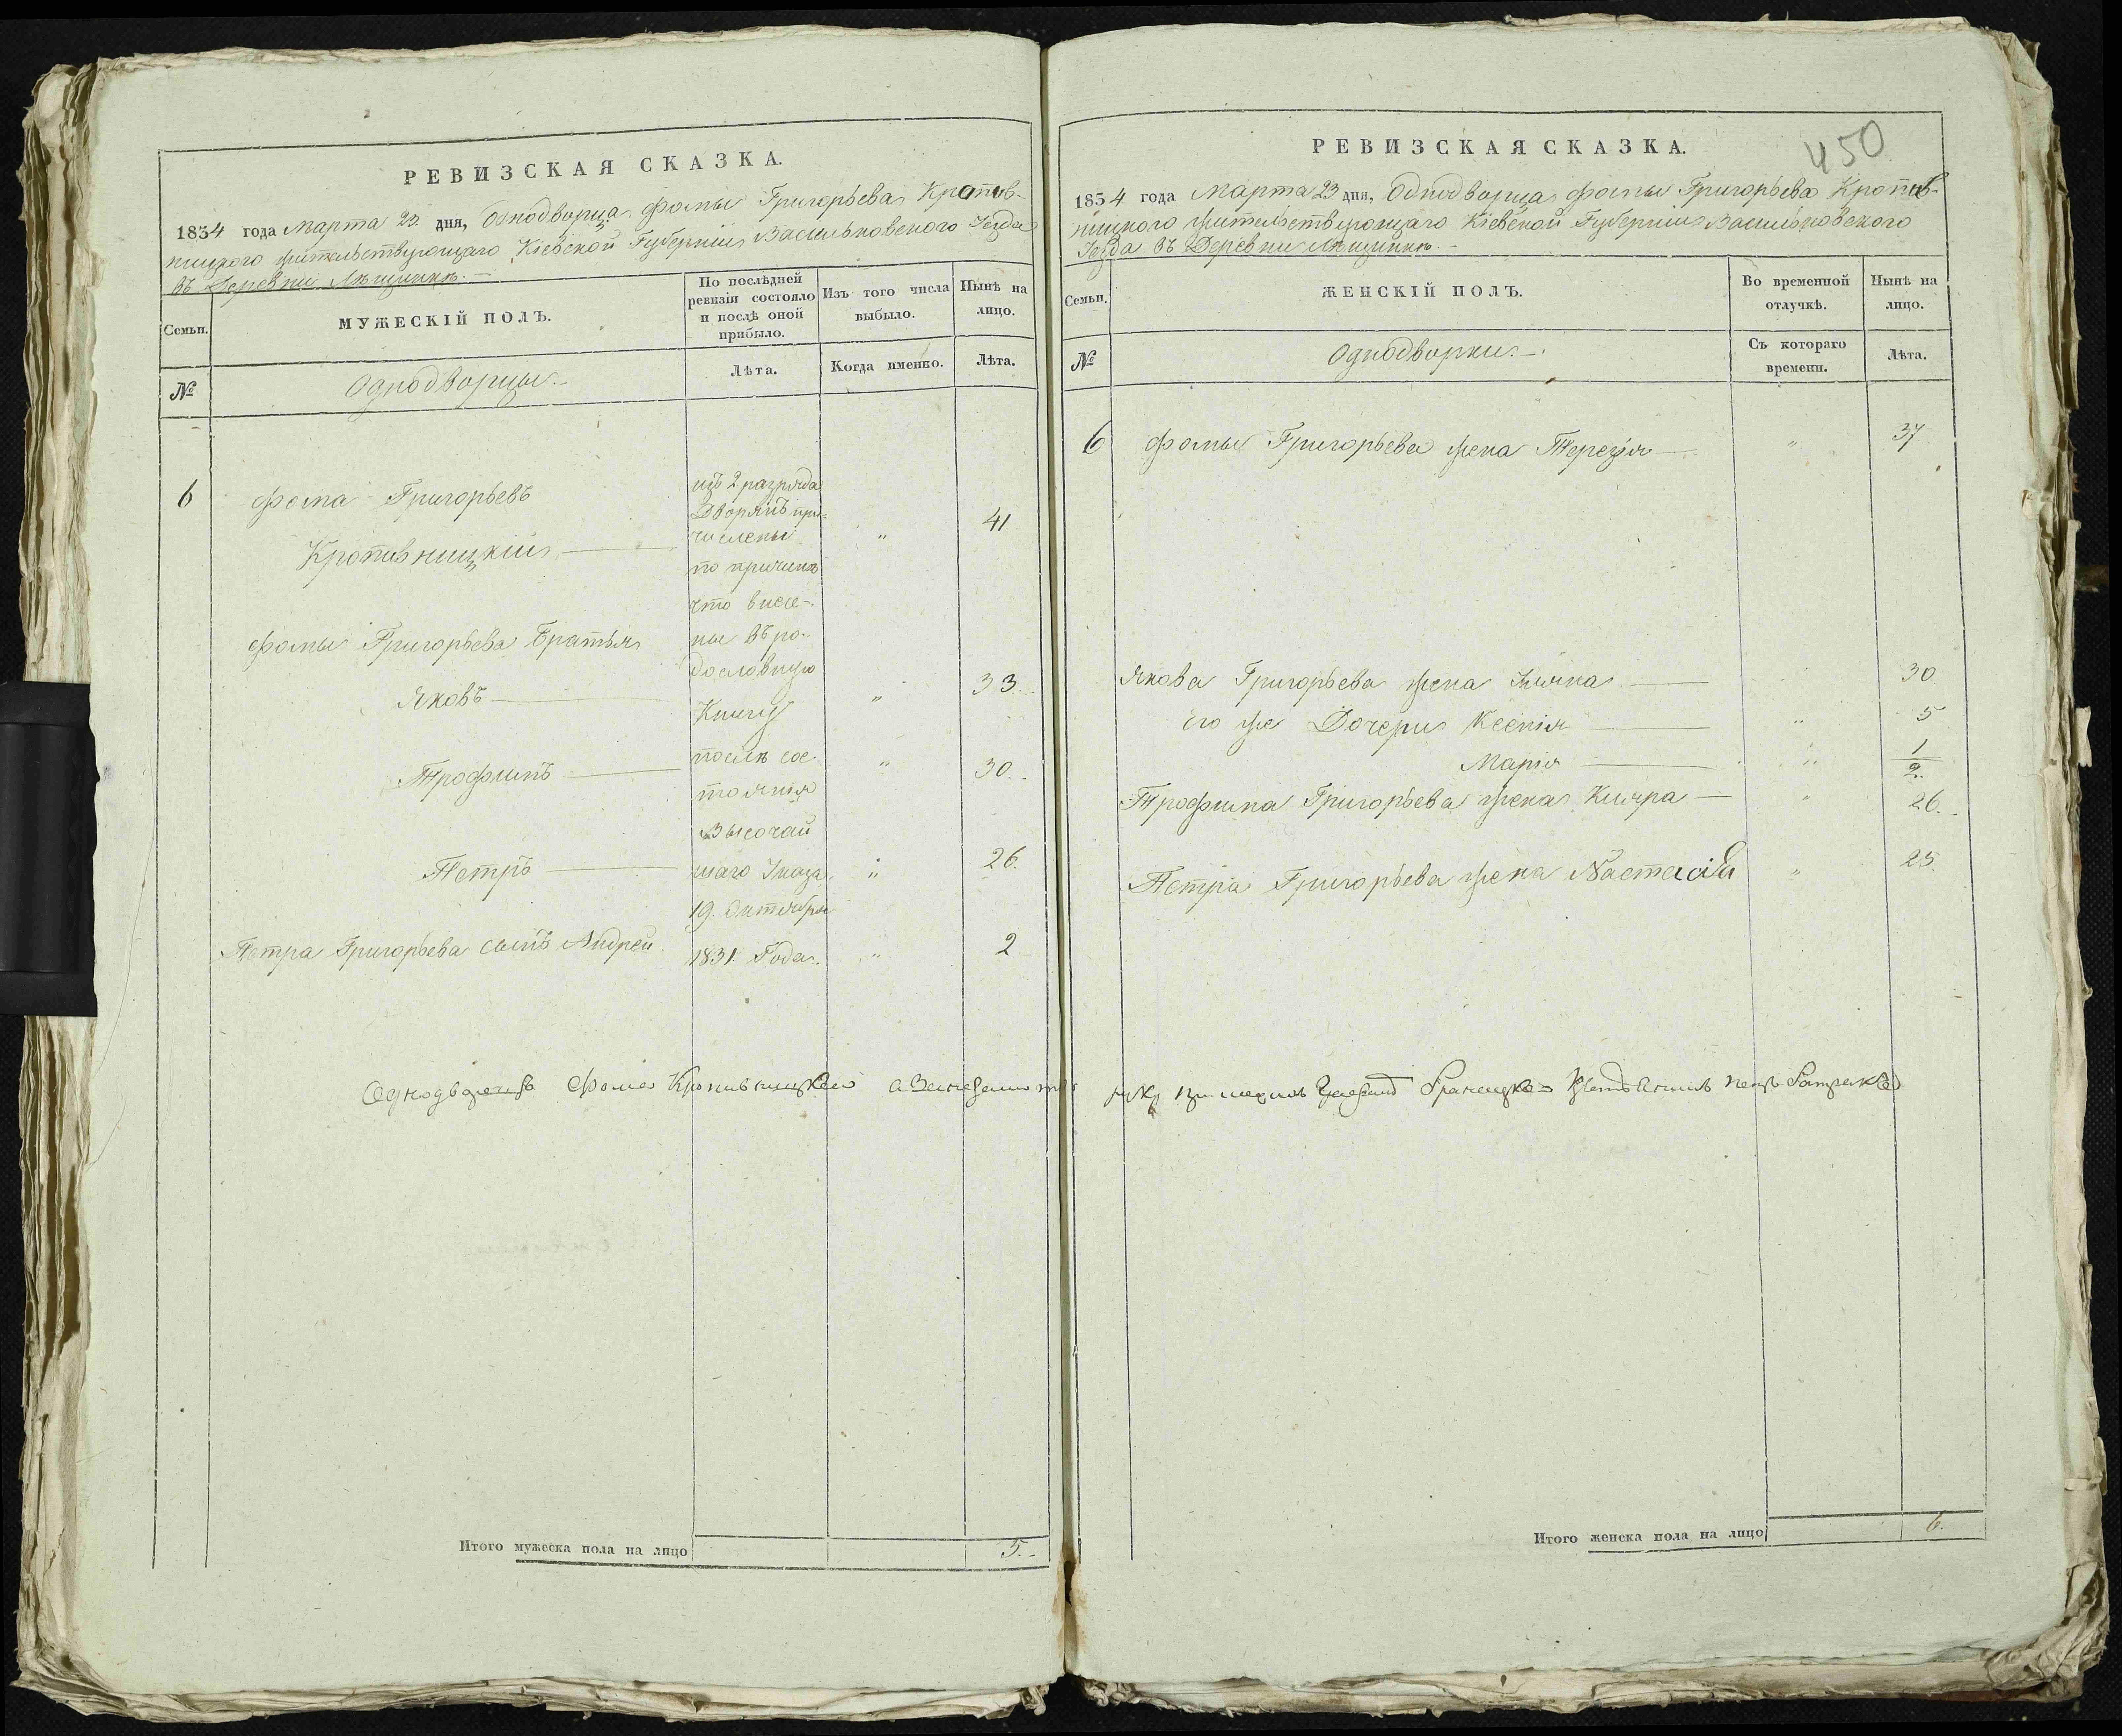 РЕВИЗСКАЯ СКАЗКА.
1834 года Марта 23. дня, Однодворца Фомы Григорьева Кропив-
ницкого жительствующаго Кіевской Губерніи Васильковского Уезда
въ Деревни
Семьи.
МУЖЕСКІЙ ПОЛЪ.
По послѣдней ревизіи состояло и послѣ оной прибыло.
Изъ того числа выбыло.
Нынѣ на лицо.
№
Однодворцы.
Лѣта.
Когда именно.
Лѣта.
6 Фома Григорьевъ
Кропивницкій " 41
изъ 2 разряда
Дворянъ при=
числены
по причинѣ
что внесе-
ны въ ро-
дословную
Книгу
послѣ сос
тоянія
Высочай
шаго Указа
19. Октября
1831 Года.
Фомы Григорьева Братья
Яковъ " 33.
Трофимъ " 30.
Петръ " 26.
Петра Григорьева сынъ Андрей " 2
Однодворецъ Фома Кропивницкій а
Итого мужеска пола на лицо 5.
450
РЕВИЗСКАЯ СКАЗКА.
1834 года Марта 23 дня, Однодворца Фомы Григорьева Кропив-
ницкого жительствующаго Кіевской Губерніи Васильковского
Уезда въ Деревни
Семьи.
ЖЕНСКІЙ ПОЛЪ.
Во временной отлучкѣ.
Нынѣ на лицо.
№
Однодворки.
Съ котораго времени.
Лѣта.
6 Фомы Григорьева жена Терезія " 37
Якова Григорьева жена " 30
Его же Дочери Ксенія " 5
Марія " 1/2
Трофима Григорьева жена " 26.
Петра Григорьева жена Настасія " 25
Итого женска пола на лицо 6.